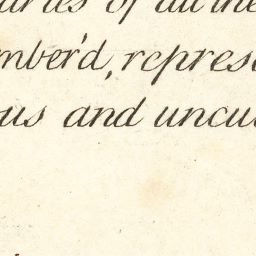 aries of all the
mber'd, represe
ous and uncul